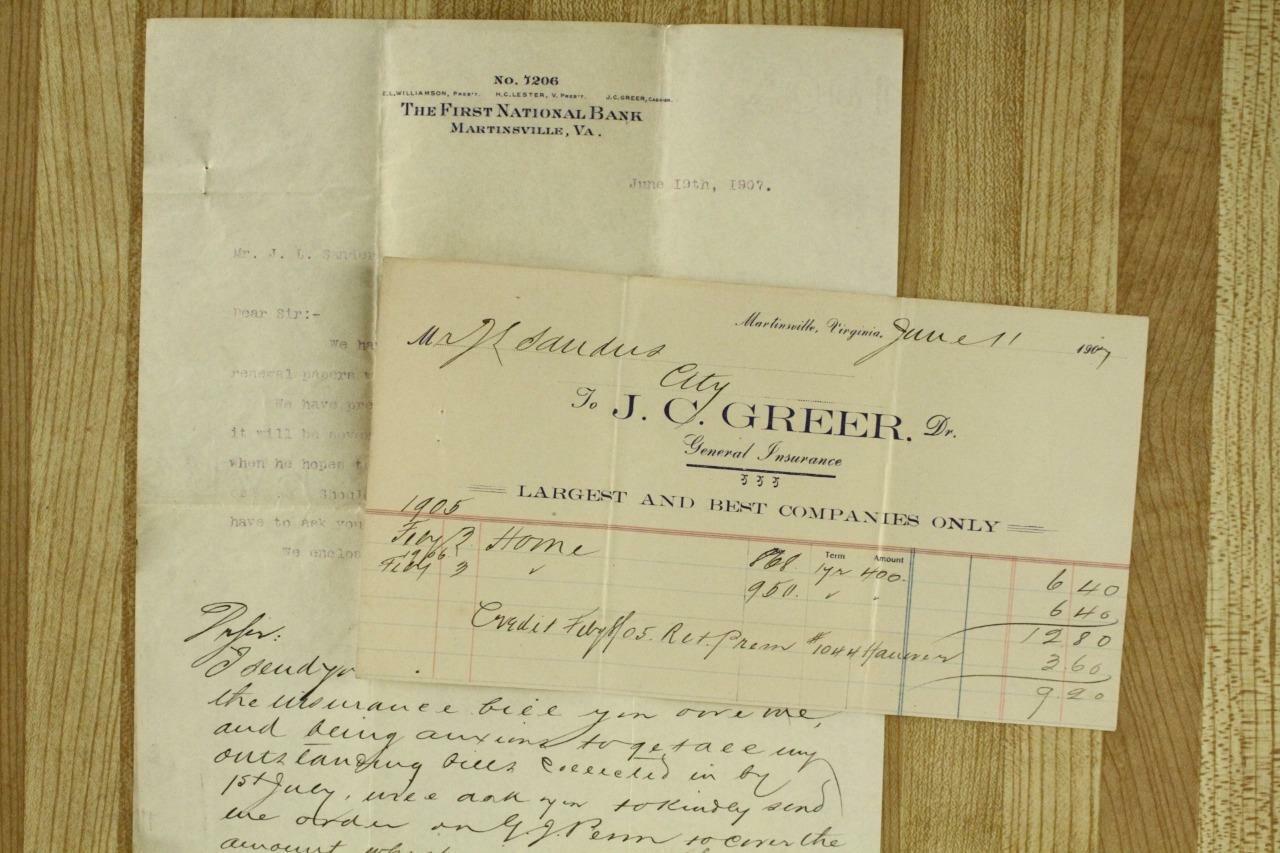 No. 7206
E.L. WILLIAMSON, PRES'T. H.C. LESTER, V. PRES'T. J.C. GREER, CASHIER.
THE FIRST NATIONAL BANK
MARTINSVILLE, VA.
June 19th, 1907.
Mr. J. L. Sander
Dear Sir:-
We ha
renewal papers
We have pre
it will be never
when he hopes t
Shoul
have to ask you
We enclos
Martinsville, Virginia, June 11 1907
Mr J L Sanders
City
To J. C. GREER. Dr.
General Insurance
LARGEST AND BEST COMPANIES ONLY
Term Amount
1905
Feby 2 Home 868 1yr 400. 6 40
1906
Feby 3 " 950. " " 6 40
12 80
Credit Feby 05. Ret. Prem #1044 Hanover 3 60
9 20
Dr sir:
I send yo
the insurance bill you owe me,
and being anxious to get all my
outstanding bills collected in by
1st July, will ask you to kindly send
me order on G. J. Penn to cover the
amount